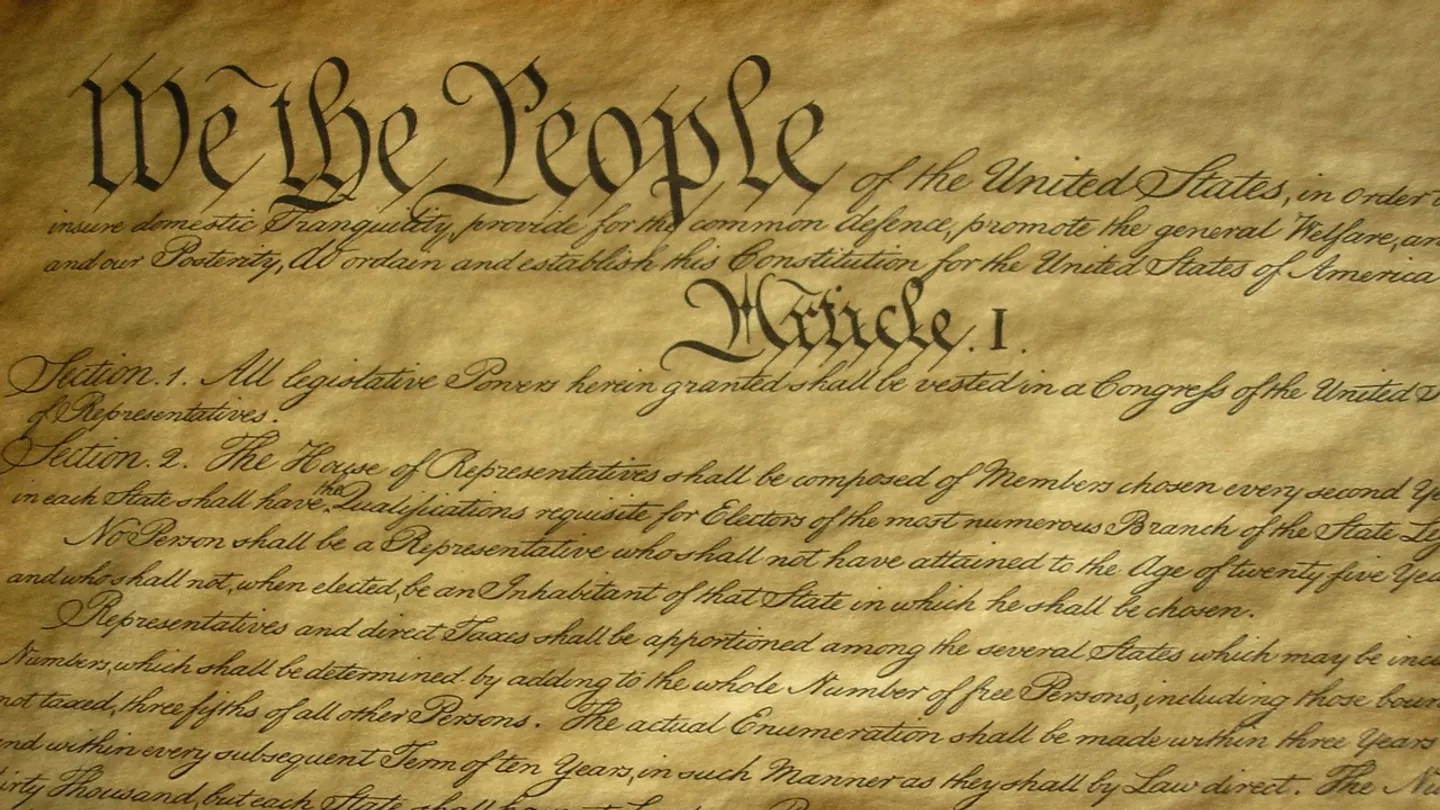 We the People of the United States, in order
insure domestic Tranquility, provide for the common defence, promote the general Welfare, an
and our Posterity, do ordain and establish this Constitution for the United States of America
Article. I.
Section. 1. All legislative Powers herein granted shall be vested in a Congress of the United S
of Representatives.
Section. 2. The House of Representatives shall be composed of Members chosen every second Ye
in each State shall have the Qualifications requisite for Electors of the most numerous Branch of the State Leg
No Person shall be a Representative who shall not have attained to the Age of twenty five Yea
and who shall not, when elected, be an Inhabitant of that State in which he shall be chosen.
Representatives and direct Taxes shall be apportioned among the several States which may be inclu
Numbers, which shall be determined by adding to the whole Number of free Persons, including those boun
not taxed, three fifths of all other Persons. The actual Enumeration shall be made within three Years
nd within every subsequent Term of ten Years, in such Manner as they shall by Law direct. The Nu
irty Thousand, but each State shall